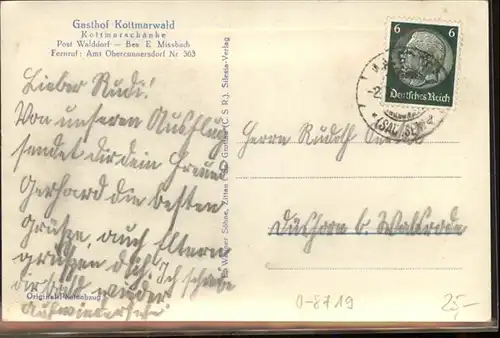 Gasthof Kottmarwald
Kottmarschänke
Post Walddorf — Bes E Missbach
Fernruf: Amt Obercunnersdorf Nr 363
Lieber Rudi!
Von unseren Ausflug
sendet dir dein Freund
Gerhard die besten
Grüße, auch Eltern
grüßen dich. Ich schreibe
dir bald wieder
Aufwiedersehn!
Original-Fotoabzug
Söhne, Zittau (C. S. R.). Silesia-Verlag
6 6
Deutsches Reich
(SACHSEN)
Herrn Rudolf
Düshorn b. Walsrode
0-8719
25,-